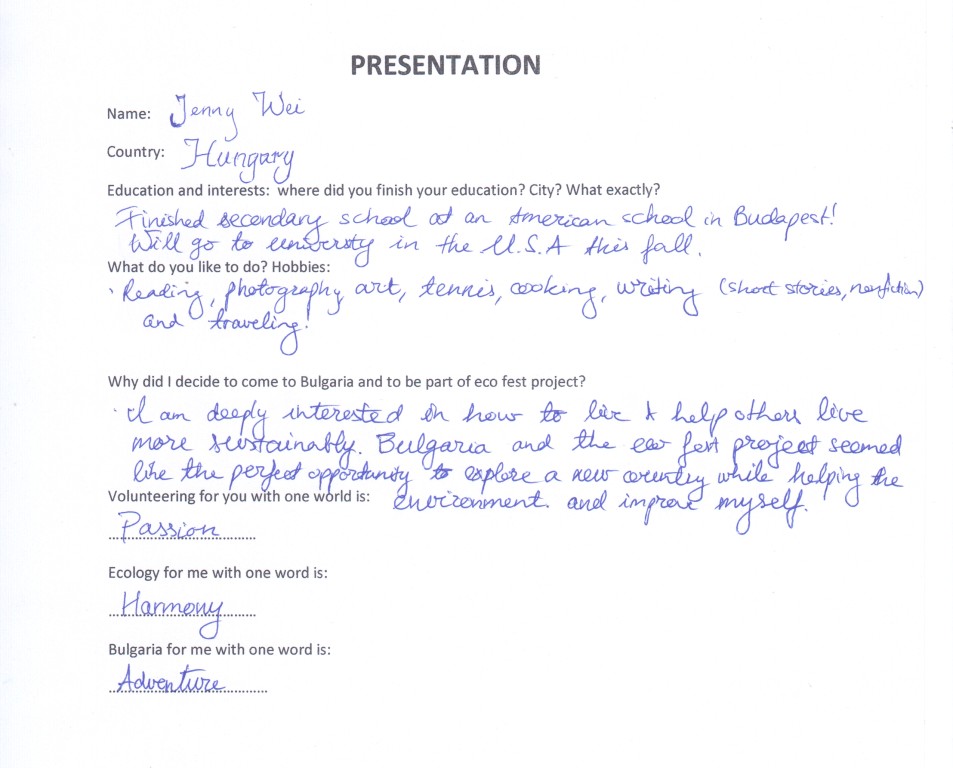 PRESENTATION
Name: Jenny Wei
Country: Hungary
Education and interests: where did you finish your education? City? What exactly?
Finished secondary school at an American school in Budapest!
Will go to university in the U.S.A this fall.
What do you like to do? Hobbies:
· Reading, photography, art, tennis, cooking, writing (short stories, nonfiction)
and traveling!
Why did I decide to come to Bulgaria and to be part of eco fest project?
· I am deeply interested in how to live & help others live
more sustainably. Bulgaria and the eco fest project seemed
like the perfect opportunity to explore a new country while helping the
Volunteering for you with one world is: environment. and improve myself.
Passion
Ecology for me with one word is:
Harmony
Bulgaria for me with one word is:
Adventure